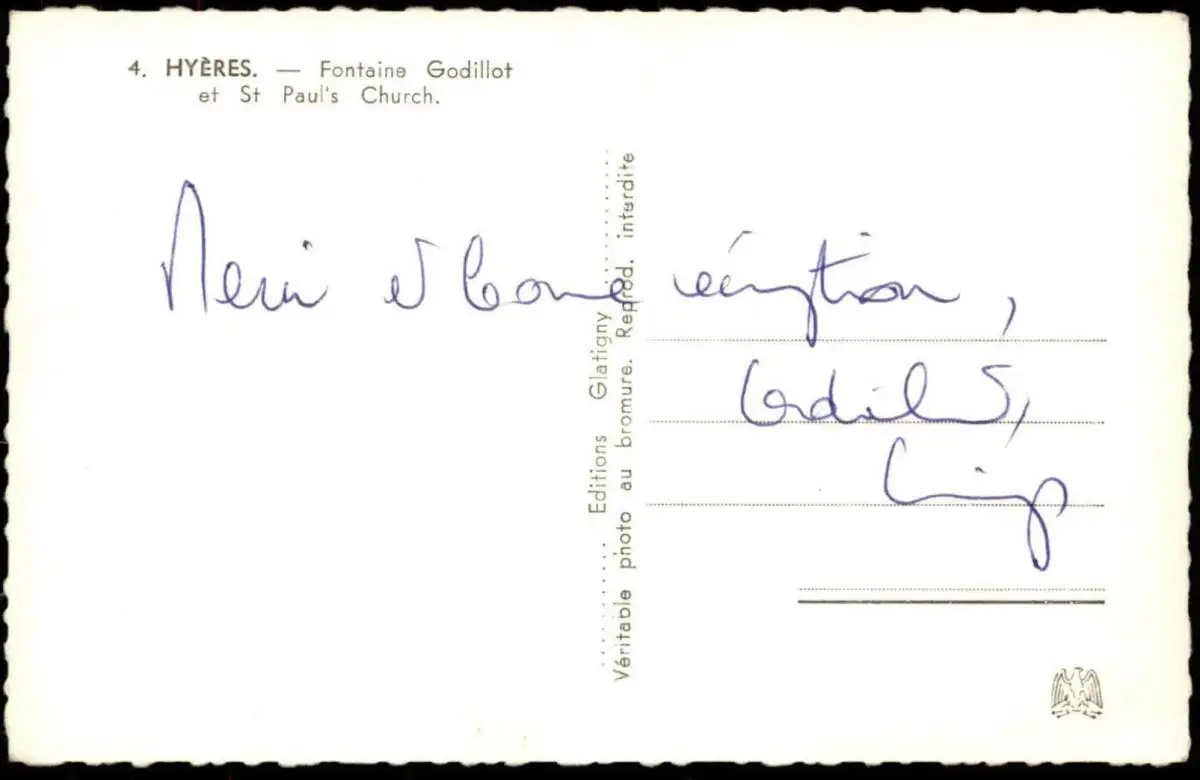 4. HYÈRES. — Fontaine Godillot
et St Paul's Church.
Merci et bonne réception,
Cordialement,
Editions Glatigny
Véritable photo au bromure. Reprod. interdite